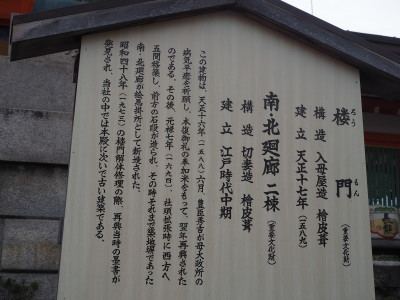 楼門（重要文化財）
ろうもん
構造 入母屋造 檜皮葺
建立 天正十七年（一五八九）
南・北廻廊 二棟（重要文化財）
構造 切妻造 檜皮葺
建立 江戸時代中期
この建物は、天正十六年（一五八八）六月、豊臣秀吉が母大政所の
病気平癒を祈願し、本復御礼の奉加米をもって、翌年再興された
ものである。その後、元禄七年（一六九四）、社頭拡張時に西方へ
五間移築し、前方の石段が造られ、その時それまで築地塀であった
南・北廻廊が絵馬掛所として新造された。
昭和四十八年（一九七三）の楼門解体修理の際、再興当時の墨書が
発見され、当社の中では本殿に次いで古い建築である。